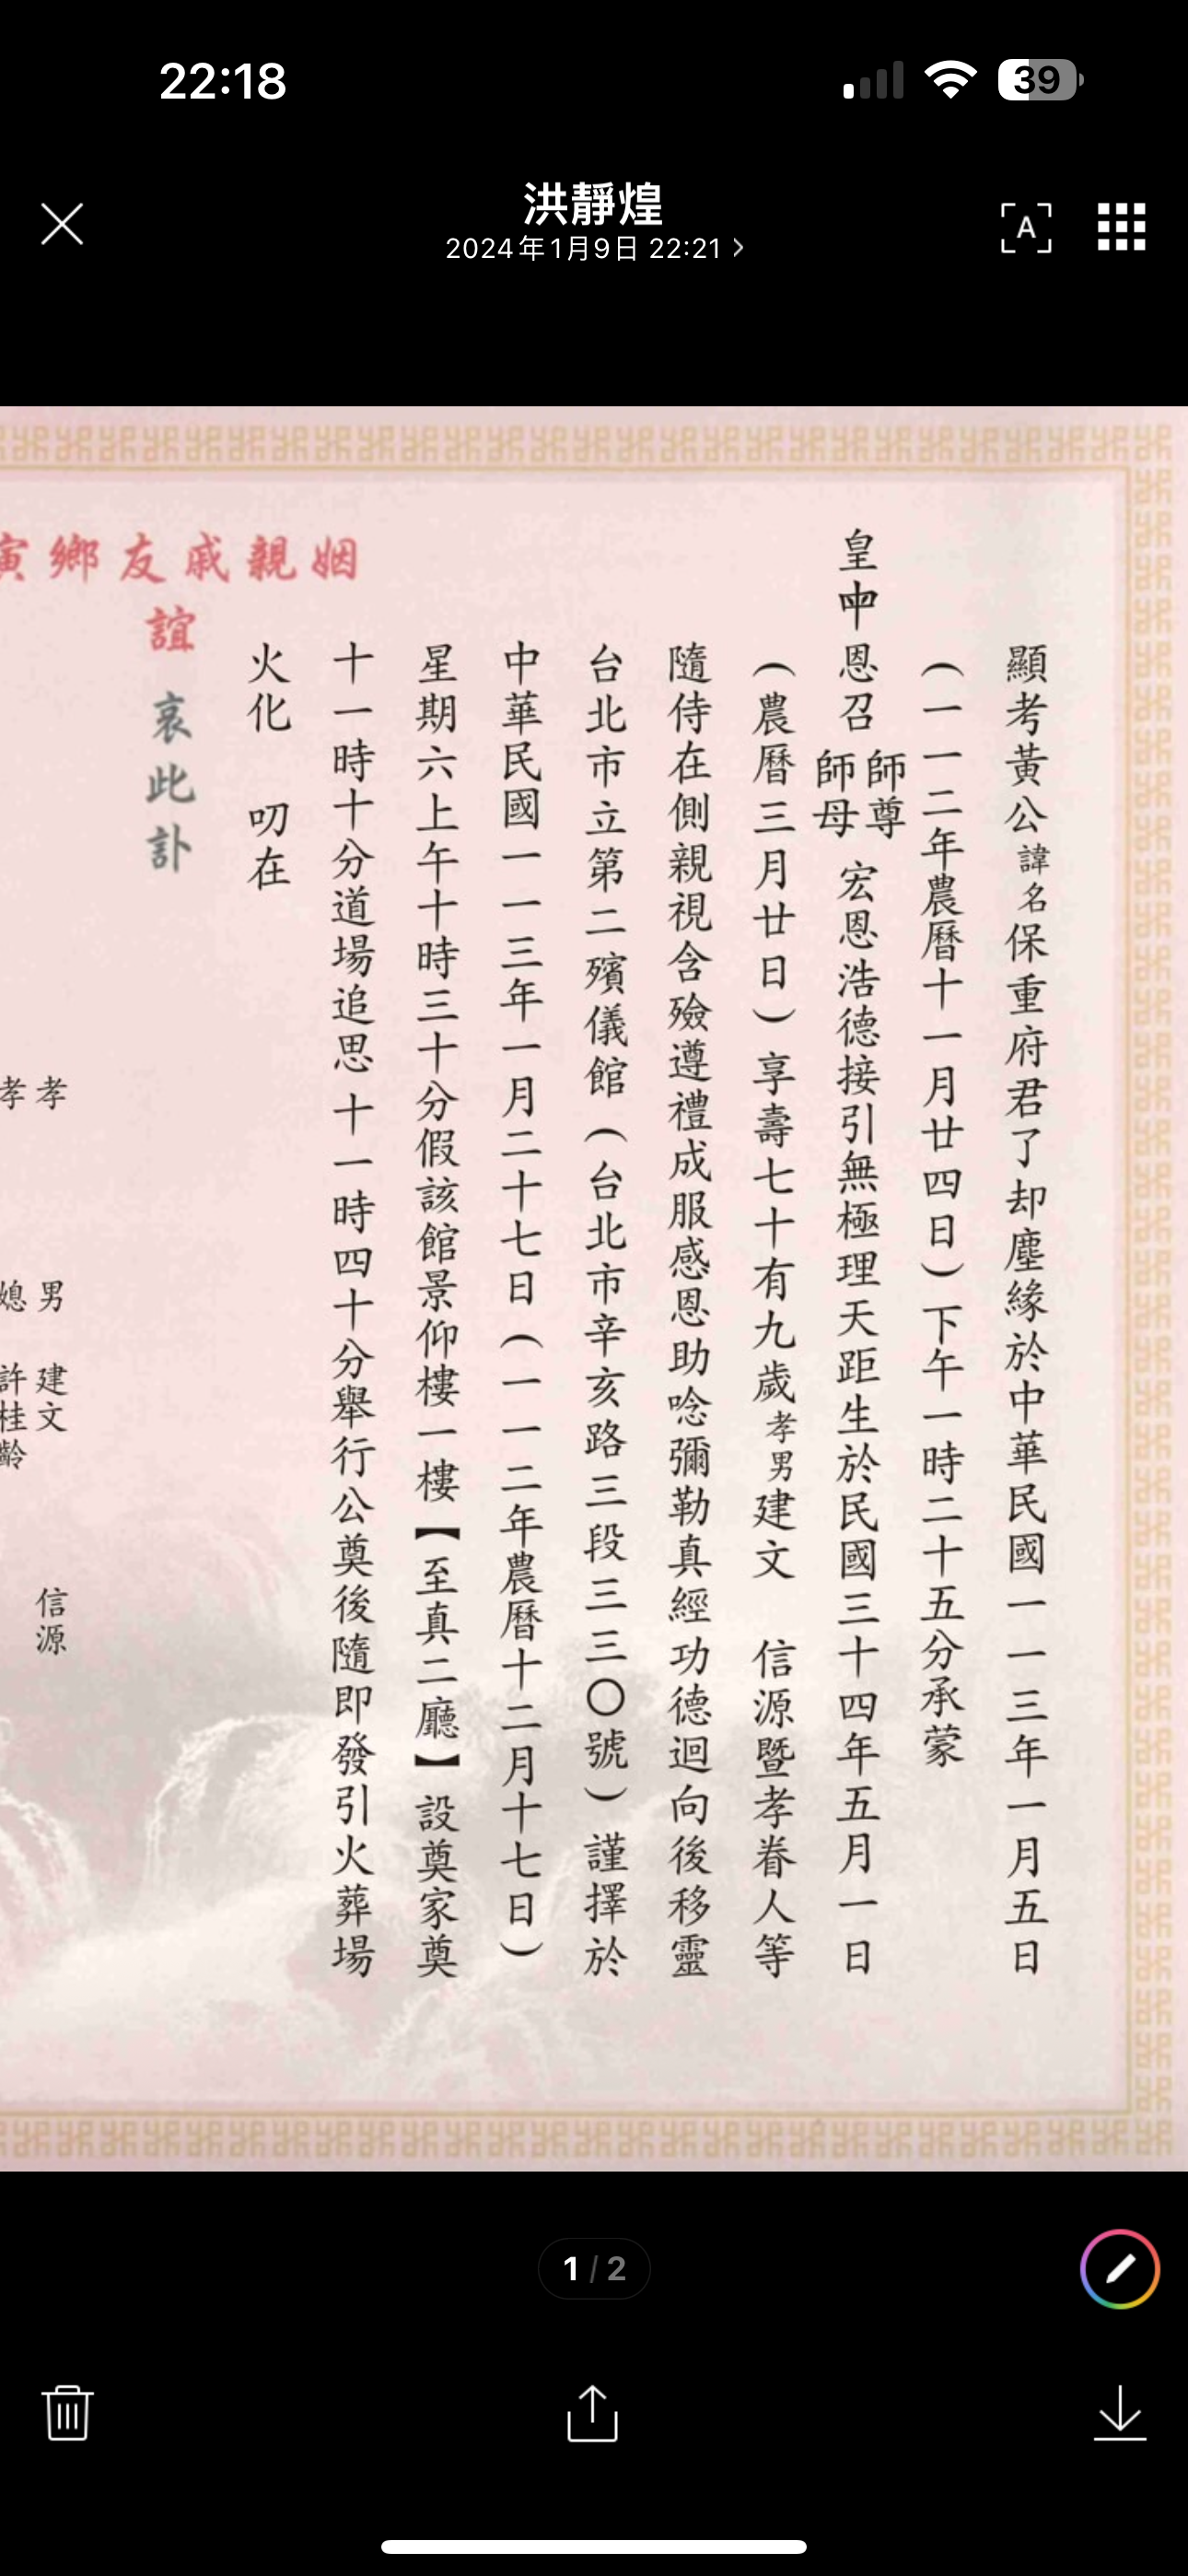 22:18
39
洪靜煌
2024年1月9日 22:21
A
顯考黃公諱名保重府君了却塵緣於中華民國一一三年一月五日
（一一二年農曆十一月廿四日）下午一時二十五分承蒙
皇申恩召師尊師母宏恩浩德接引無極理天距生於民國三十四年五月一日
（農曆三月廿日）享壽七十有九歲孝男建文 信源暨孝眷人等
隨侍在側親視含殮遵禮成服感恩助唸彌勒真經功德迴向後移靈
台北市立第二殯儀館（台北市辛亥路三段三三〇號）謹擇於
中華民國一一三年一月二十七日（一一二年農曆十二月十七日）
星期六上午十時三十分假該館景仰樓一樓【至真二廳】設奠家奠
十一時十分道場追思十一時四十分舉行公奠後隨即發引火葬場
火化 叨在
姻親戚友鄉寅
誼 哀此訃
孝 男 建文 信源
孝 媳 許桂齡
1 / 2